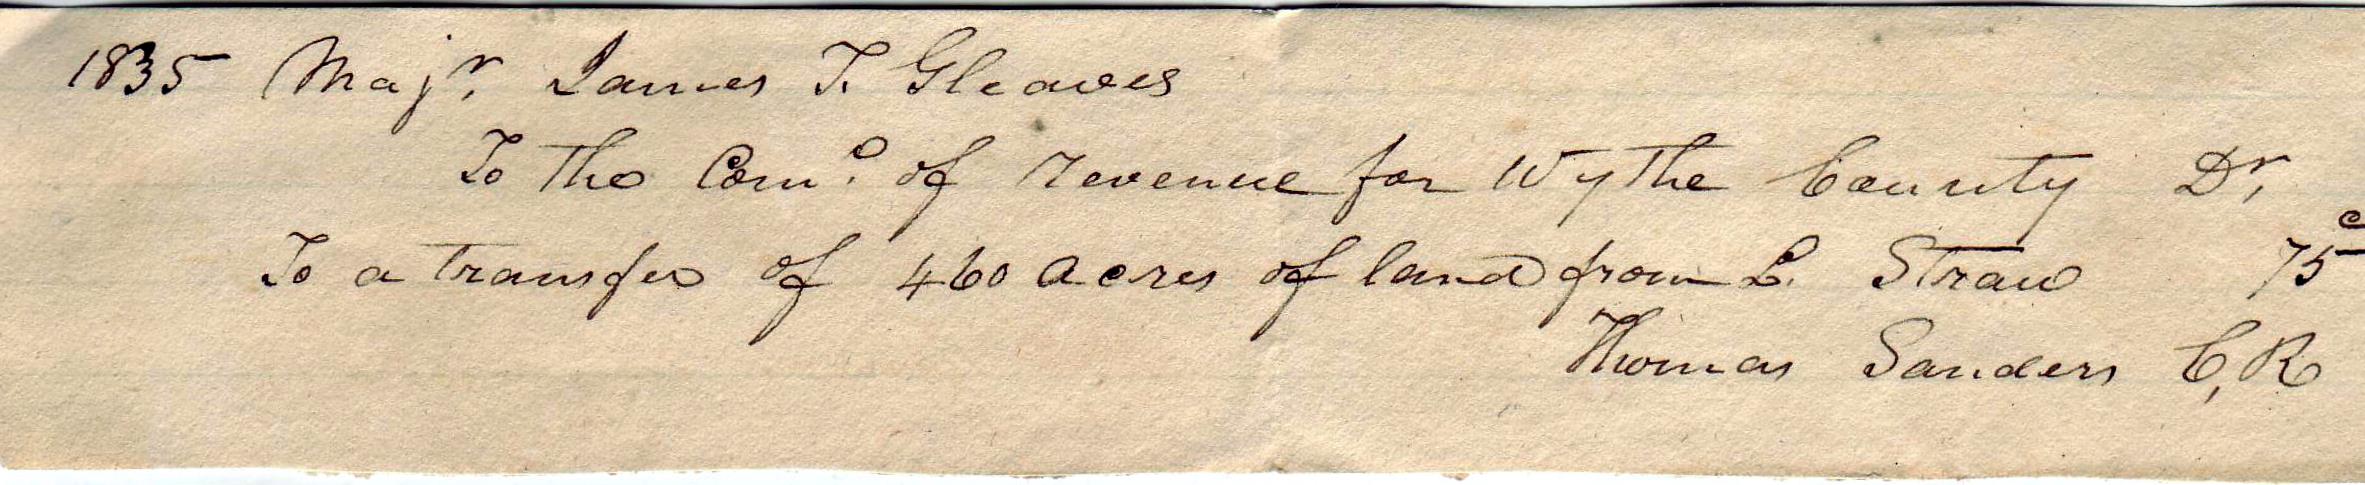 1835 Majr. James T. Gleaves
To the Comr. of revenue for Wythe County Dr,
To a transfer of 460 acres of land from L. Straw 75c
Thomas Sanders C,R